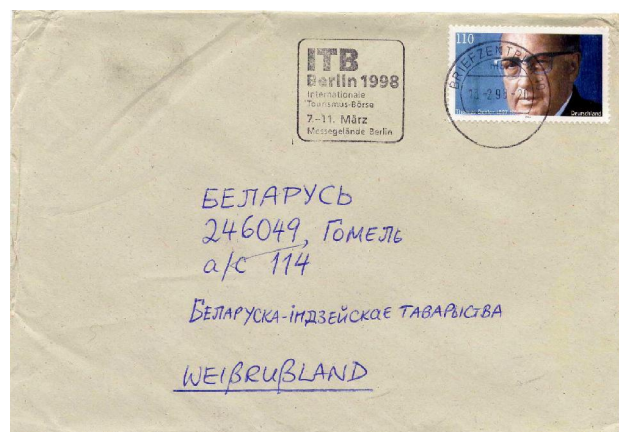 ITB
Berlin 1998
Internationale
Tourismus-Börse
7.-11. März
Messegelände Berlin
110
BRIEFZENTR
Deutschland
БЕЛАРУСЬ
246049, ГОМЕЛЬ
а/с 114
БЕЛАРУСКА-ІНДЗЕЙСКАЕ ТАВАРЫСТВА
WEIßRUßLAND